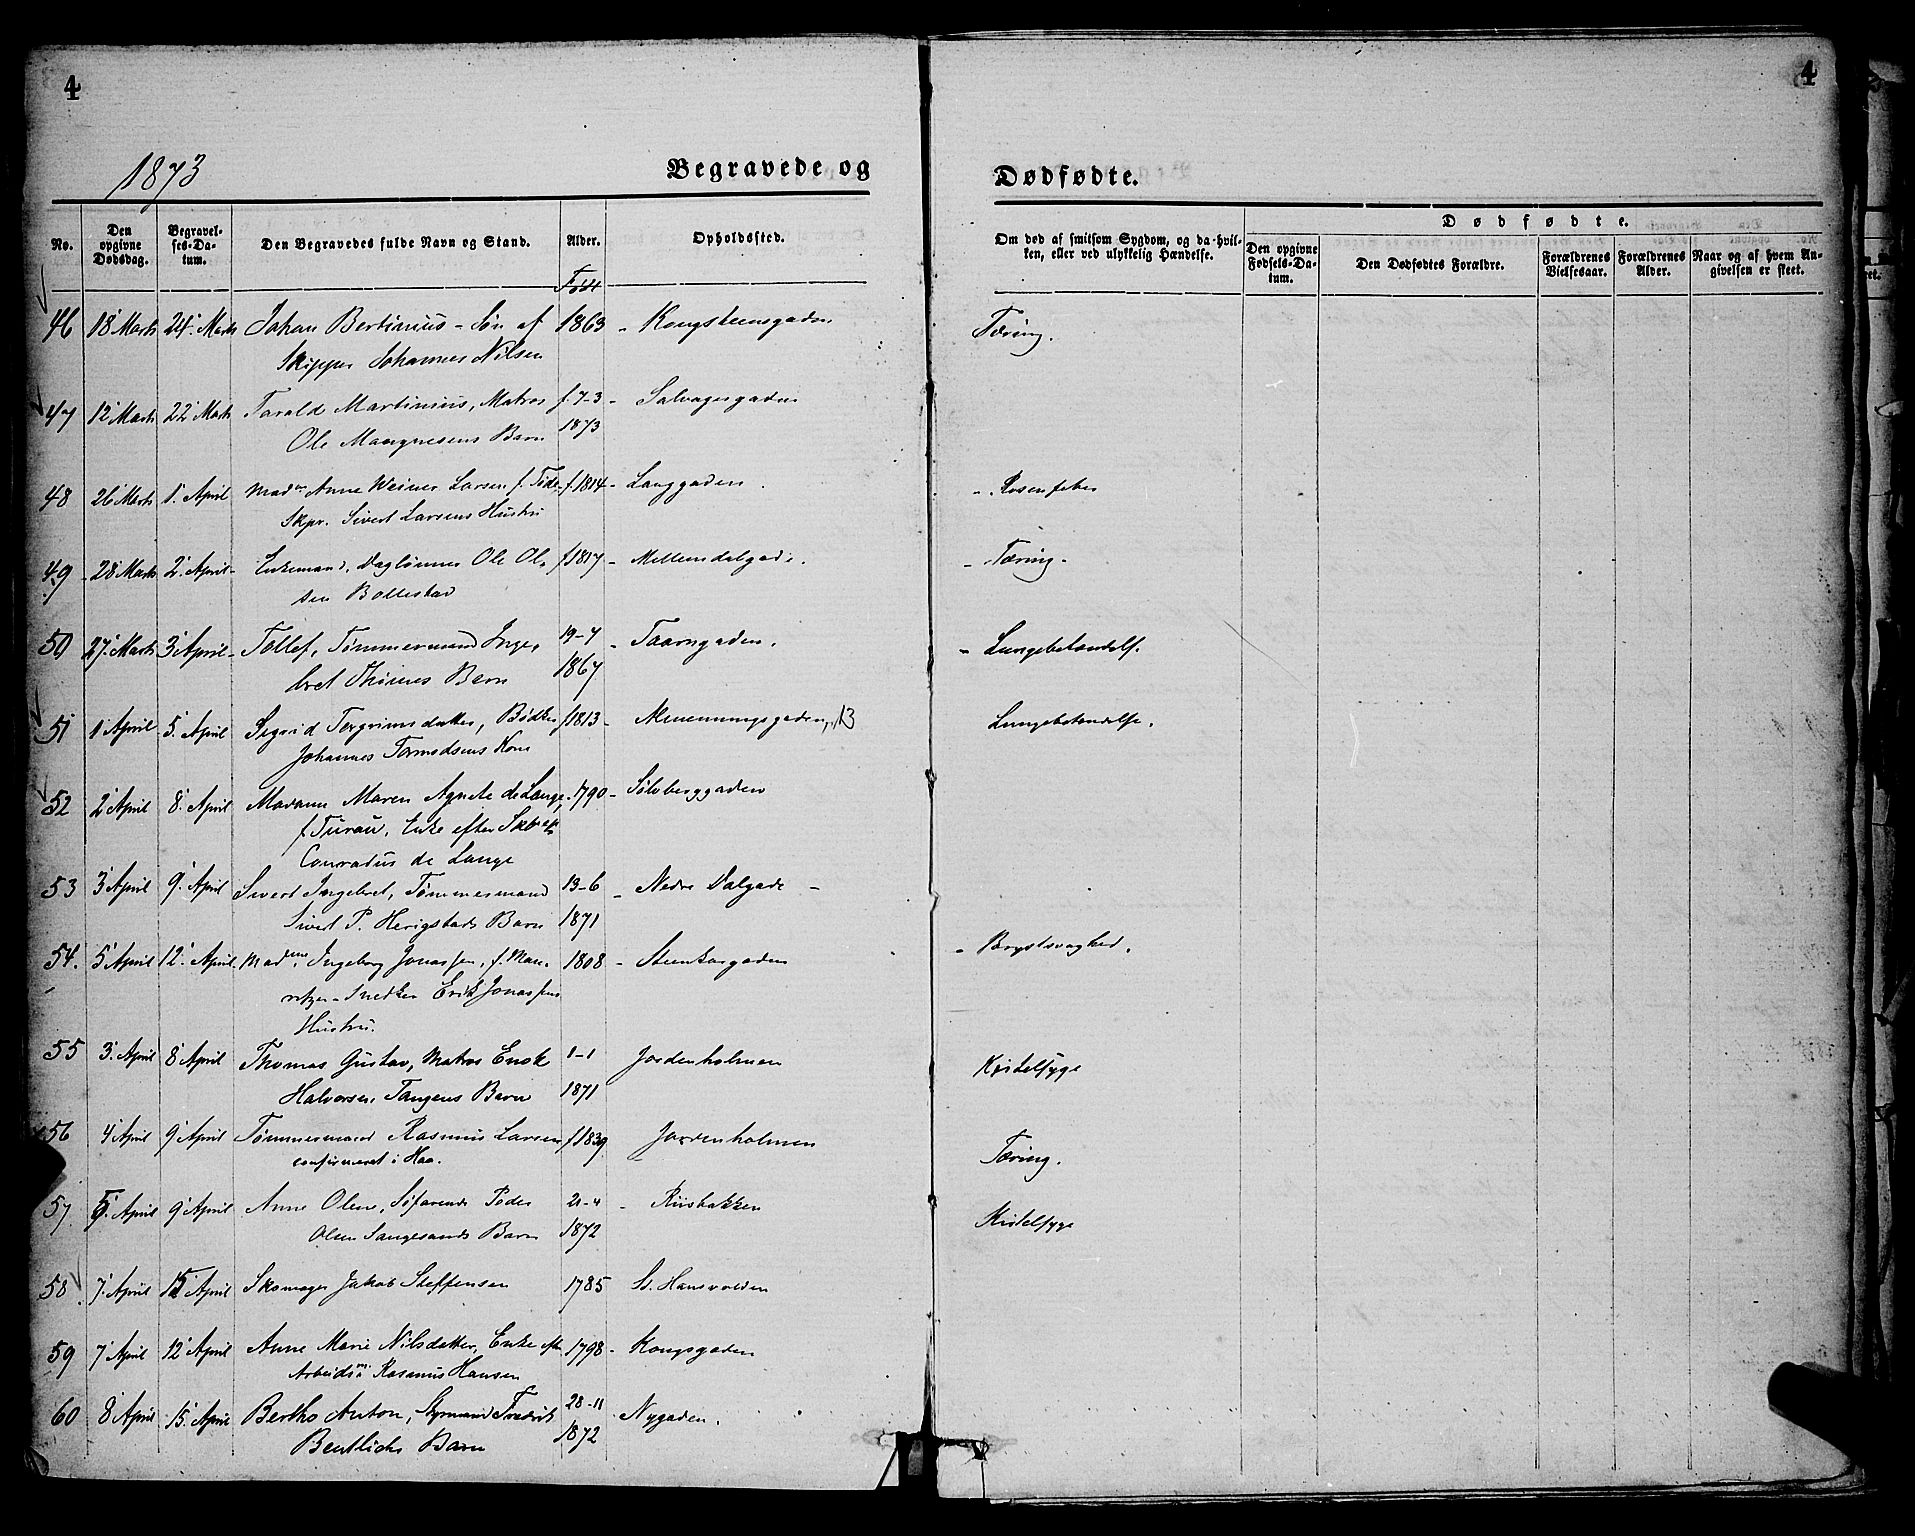 4
4
1873
Begravede og
Dødfødte.
No.
Den opgivne Dødsdag.
Begravelses-Datum.
Den Begravedes fulde Navn og Stand.
Alder.
Opholdssted.
Om død af smitsom Sygdom, og da hvilken, eller ved ulykkelig Hændelse.
Dødfødte.
Den opgivne Fødsels-Datum.
Den Dødfødtes Forældre.
Forældrenes Vielsesaar.
Forældrenes Alder.
Naar og af hvem Angivelsen er skeet.
Født
46 18' Marts 24' Marts Johan Bertinius - Søn af 1863 - Kongsteensgaden Tæring.
Skipper Johannes Nilsen
47 12' Marts 22' Marts Tarald Martinius, Matros f. 7-3 - Salvagergaden
Ole Mangnesens Barn 1873
48 26' Marts 1' April Mad. Anne Larsen f. f. 1814 - Langgaden. - Rosenfeber
Skpr. Sivert Larsens Hustru
49 - 28' Marts 2' April - Enkemand, Daglønner Ole Ol- f 1817 - Mellemdalgade. - Tæring.
sen Bollestad
50 27' Marts 3' April - Tollef, Tømmermand Inge- 19-7 - Taarngaden. - Lungebetændelse.
bret Thimes Barn 1867
51 1' April 5' April Sigrid Torgrimsdatter, Bødker f 1813 - 13 Lungebetændelse.
Johannes Tormodsens Kone
52 2' April 8' April Madame Maren Agnete de Lange, 1790 - Sølvberggaden
f. Turau, Enke efter
Conradus de Lange
53 3' April 9' April Sivert Ingebret, Tømmermand 13-6 - Nedre Dalgade -
Sivert P. Herigstads Barn 1871
54. 5' April 12' April. Mad. Ingeborg Jonassen, f. Mau- 1808 - Steenkargaden - Brystsvaghed.
ritzen - Snedker Erik Jonassens
Hustru.
55 3' April 8' April Thomas Gustav, Matros Enok 1-1 Jordenholmen Kjertelsyge
Halvorsen Tangens Barn 1871
56 4' April 9' April Tømmermand Rasmus Larsen f 1839 Jordenholmen Tæring.
confirmeret i Haa.
57 5' April 9' April Anne Oline, Søfarende Peder 21-4 - Riisbakken Kjertelsyge
Olsen Sangesands Barn 1872
58. 7' April 15' April Skomager Jakob Steffensen 1785 St. Hansvolden
59 7' April 12' April Anne Marie Nilsdatter, Enke efter 1798 - Kongsgaden
Arbeidsm Rasmus Hansen
60 8' April 15' April Bertho Anton, Styrmand Fredrik 28-11 Nygaden.
Bentlichs Barn 1872